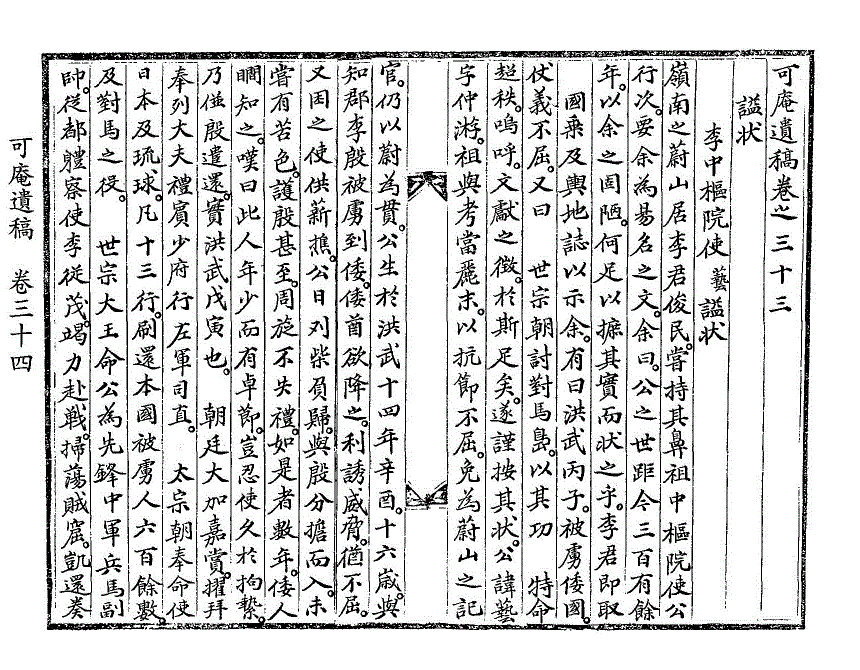 可庵遺稿卷之三十三
謚狀
李中樞院使藝謚狀
嶺南之蔚山居李君俊民。嘗持其鼻祖中樞院使公
行次。要余爲易名之文。余曰。公之世距今三百有餘
年。以余之固陋。何足以摭其實而狀之乎。李君卽取
國乘及輿地誌以示余。有曰洪武丙子。被虜倭國。
伏義不屈。又曰 世宗朝討對馬島。以其功 特命
超秩。嗚呼。文獻之徵。於斯足矣。遂謹按其狀。公諱藝
字仲游。祖與考當麗末。以抗節不屈。免爲蔚山之記
官。仍以蔚爲貫。公生於洪武十四年辛酉。十六歲。與
知郡李殷被虜到倭。倭酋欲降之。利誘威脅。猶不屈。
又因之使供薪樵。公日刈柴負歸。與殷分擔而入。未
嘗有苦色。護殷甚至。周旋不失禮。如是者數年。倭人
瞷知之。嘆曰此人年少而有卓節。豈忍使久於拘縶。
乃並殷遣還。實洪武戊寅也。 朝廷大加嘉賞。擢拜
奉列大夫禮賓少府行左軍司直。 太宗朝奉命使
日本及琉球。凡十三行。刷還本國被虜人六百餘數。
及對馬之役。 世宗大王命公爲先鋒中軍兵馬副
帥。從都軆察使李從茂。竭力赴戰。掃蕩賊窟。凱還奏
可庵遺稿 卷三十四